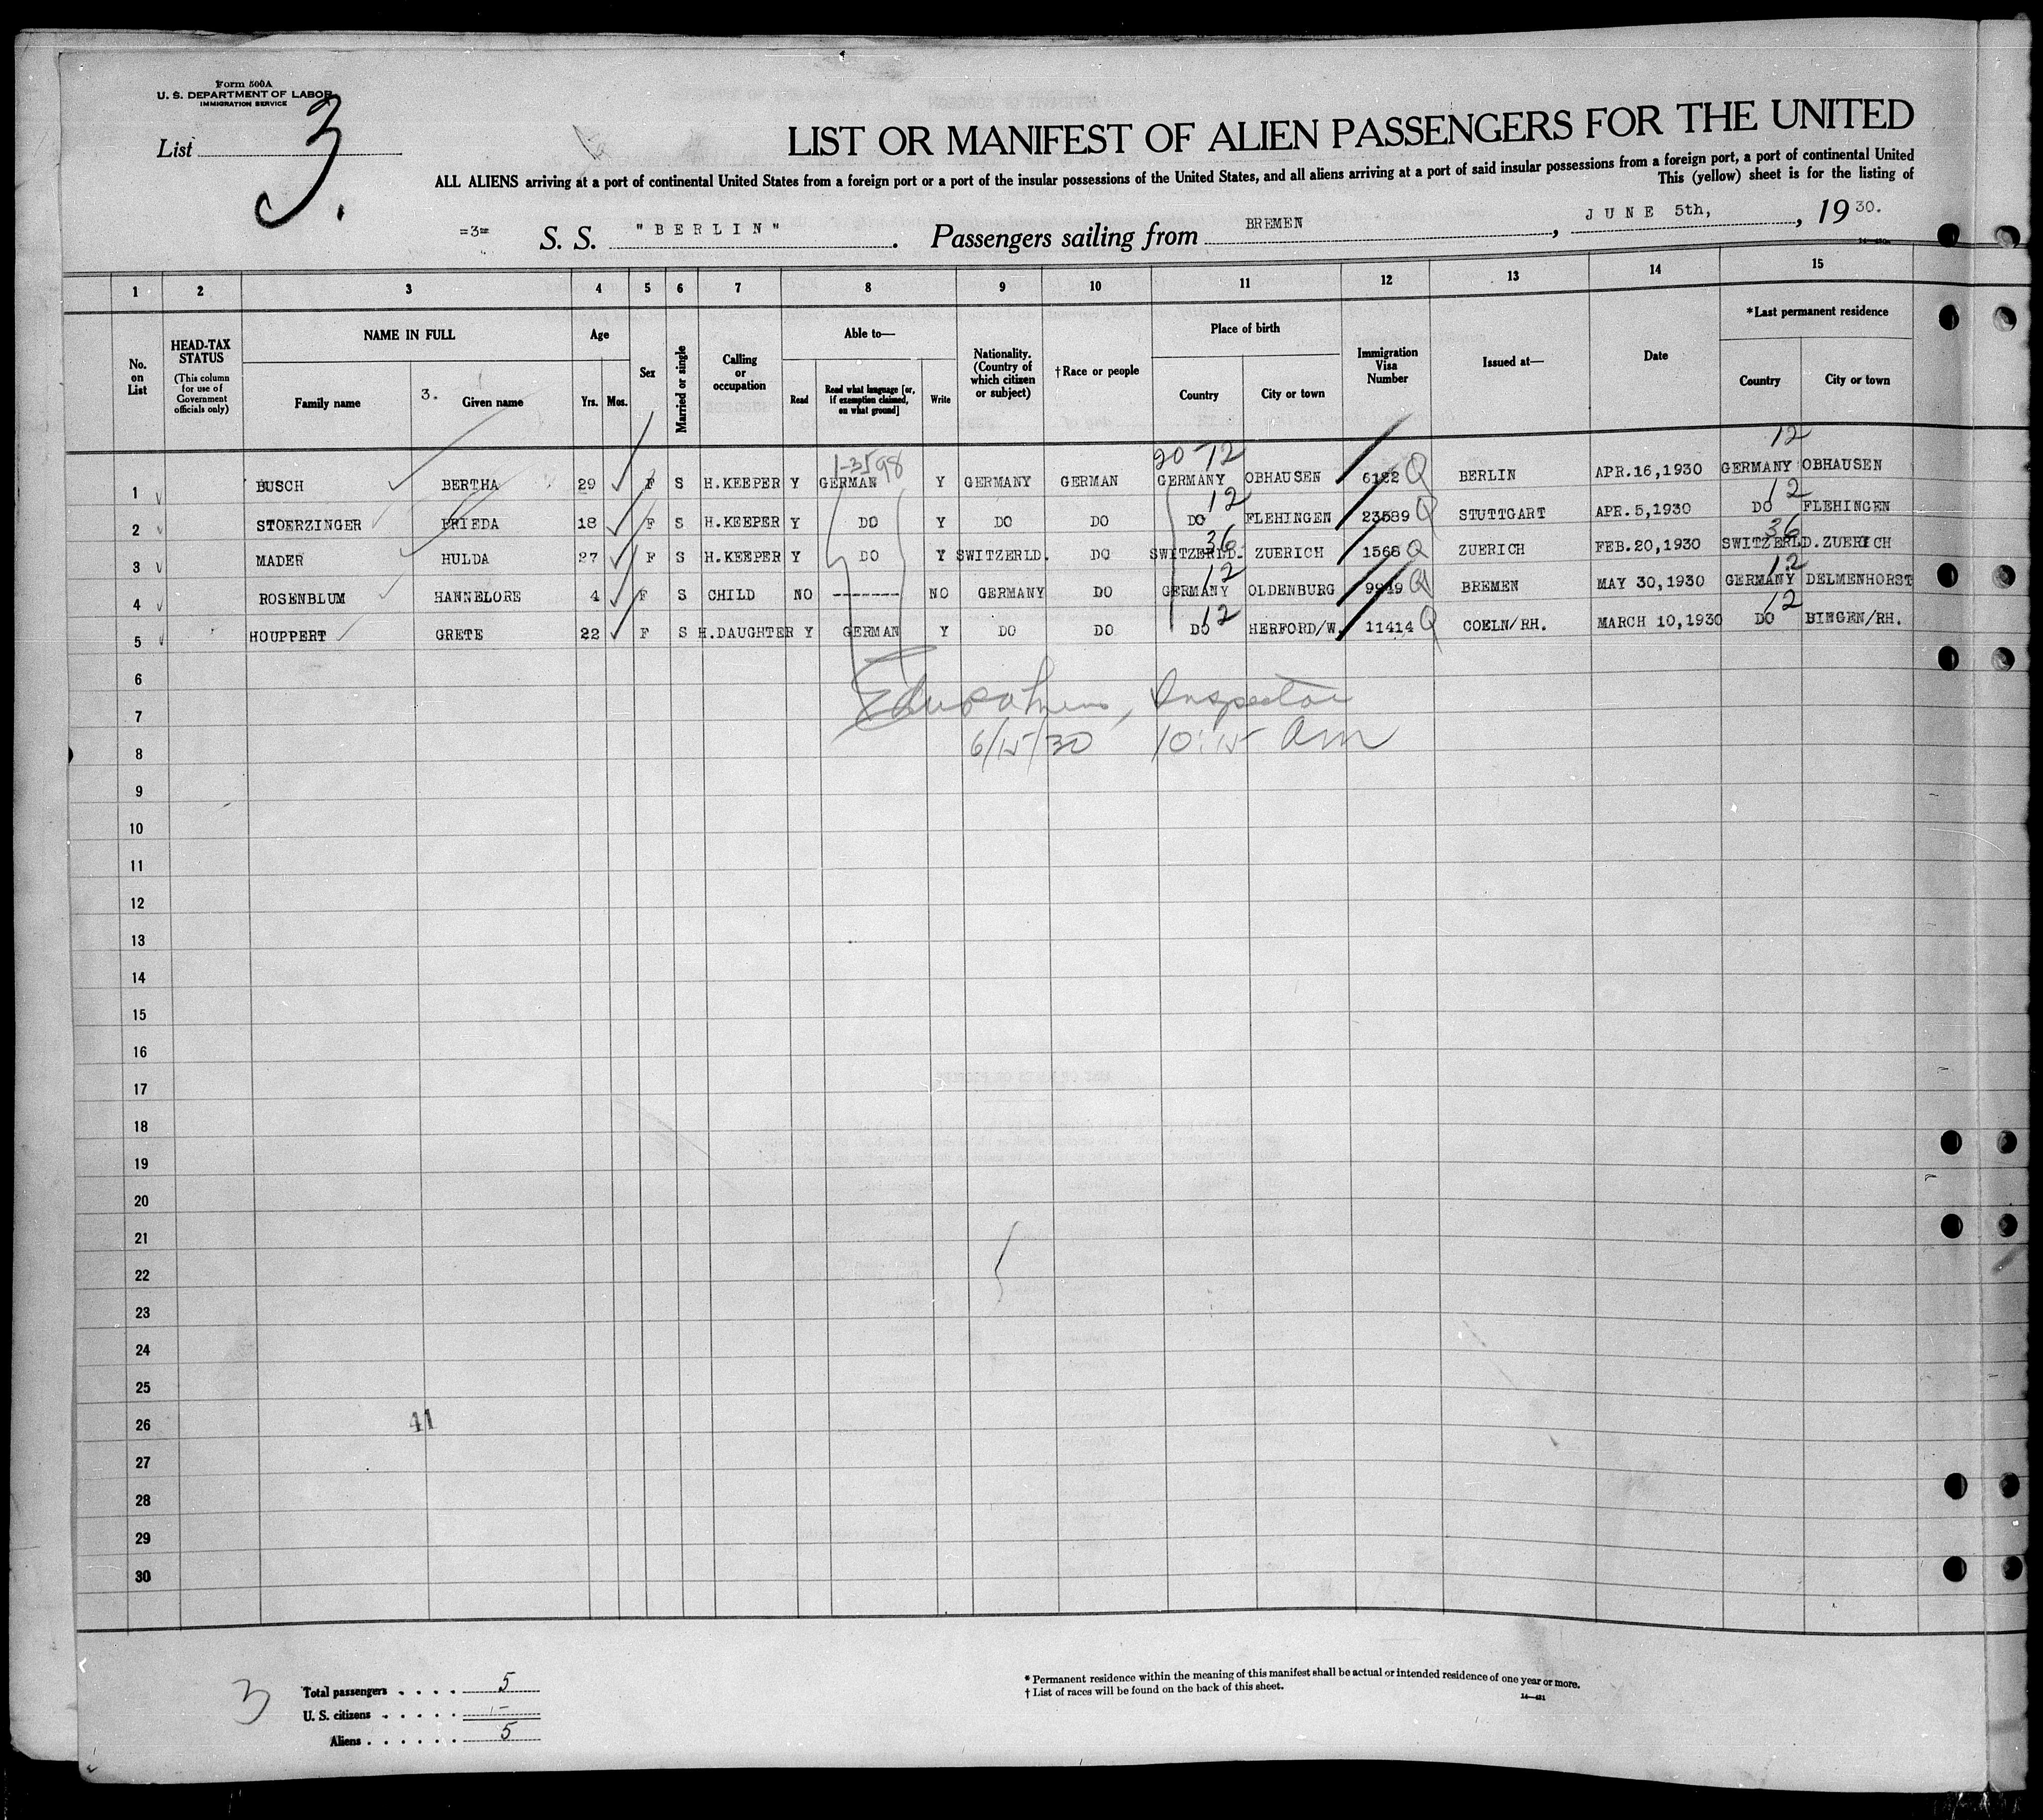 Form 500A
U. S. DEPARTMENT OF LABOR
IMMIGRATION SERVICE
List 3.
LIST OR MANIFEST OF ALIEN PASSENGERS FOR THE UNITED
ALL ALIENS arriving at a port of continental United States from a foreign port or a port of the insular possessions of the United States, and all aliens arriving at a port of said insular possessions from a foreign port, a port of continental United
This (yellow) sheet is for the listing of
=3= S. S. "BERLIN". Passengers sailing from BREMEN, JUNE 5th, , 19 30.
1 2 3 4 5 6 7 8 9 10 11 12 13 14 15
No. on List
HEAD-TAX STATUS (This column for use of Government officials only)
NAME IN FULL
Family name 3. Given name
Age
Yrs. Mos.
Sex
Married or single
Calling or occupation
Able to—
Read
Read what language [or, if exemption claimed, on what ground]
Write
Nationality. (Country of which citizen or subject)
†Race or people
Place of birth
Country City or town
Immigration Visa Number
Issued at—
Date
*Last permanent residence
Country City or town
1-3598 20-12 12
1 BUSCH BERTHA 29 F S H.KEEPER Y GERMAN Y GERMANY GERMAN GERMANY OBHAUSEN 6122 Q BERLIN APR.16,1930 GERMANY OBHAUSEN
12 12
2 STOERZINGER FRIEDA 18 F S H.KEEPER Y DO Y DO DO DO FLEHINGEN 23589 Q STUTTGART APR.5,1930 DO FLEHINGEN
36 36
3 MADER HULDA 27 F S H.KEEPER Y DO Y SWITZERLD. DO SWITZERLD. ZUERICH 1568 Q ZUERICH FEB.20,1930 SWITZERLD. ZUERICH
12 12
4 ROSENBLUM HANNELORE 4 F S CHILD NO -------- NO GERMANY DO GERMANY OLDENBURG 9949 Q BREMEN MAY 30,1930 GERMANY DELMENHORST
12 12
5 HOUPPERT GRETE 22 F S H.DAUGHTER Y GERMAN Y DO DO DO HERFORD/W. 11414 Q COELN/RH. MARCH 10,1930 DO BINGEN/RH.
6
7 Inspector
8 6/15/30 10:15 am
9
10
11
12
13
14
15
16
17
18
19
20
21
22
23
24
25
26 41
27
28
29
30
3
Total passengers . . . . 5
U. S. citizens . . . . . -
Aliens . . . . . . 5
* Permanent residence within the meaning of this manifest shall be actual or intended residence of one year or more.
† List of races will be found on the back of this sheet.
14—421